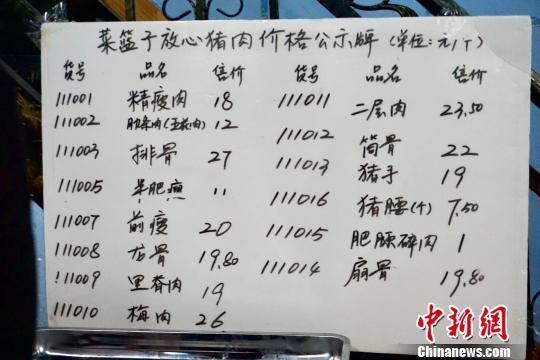 菜篮子放心猪肉价格公示牌(单位:元/斤)
货号 品名 售价 货号 品名 售价
111001 精瘦肉 18 111011 二层肉 23.50
111002 肋条肉(五花肉) 12 111012 筒骨 22
111003 排骨 27 111013 猪手 19
111005 半肥瘦 11 111016 猪腰(个) 7.50
111007 前瘦 20 111015 肥膘碎肉 1
111008 龙骨 19.80 111014 扇骨 19.80
111009 里脊肉 19
111010 梅肉 26
中新网
Chinanews.com